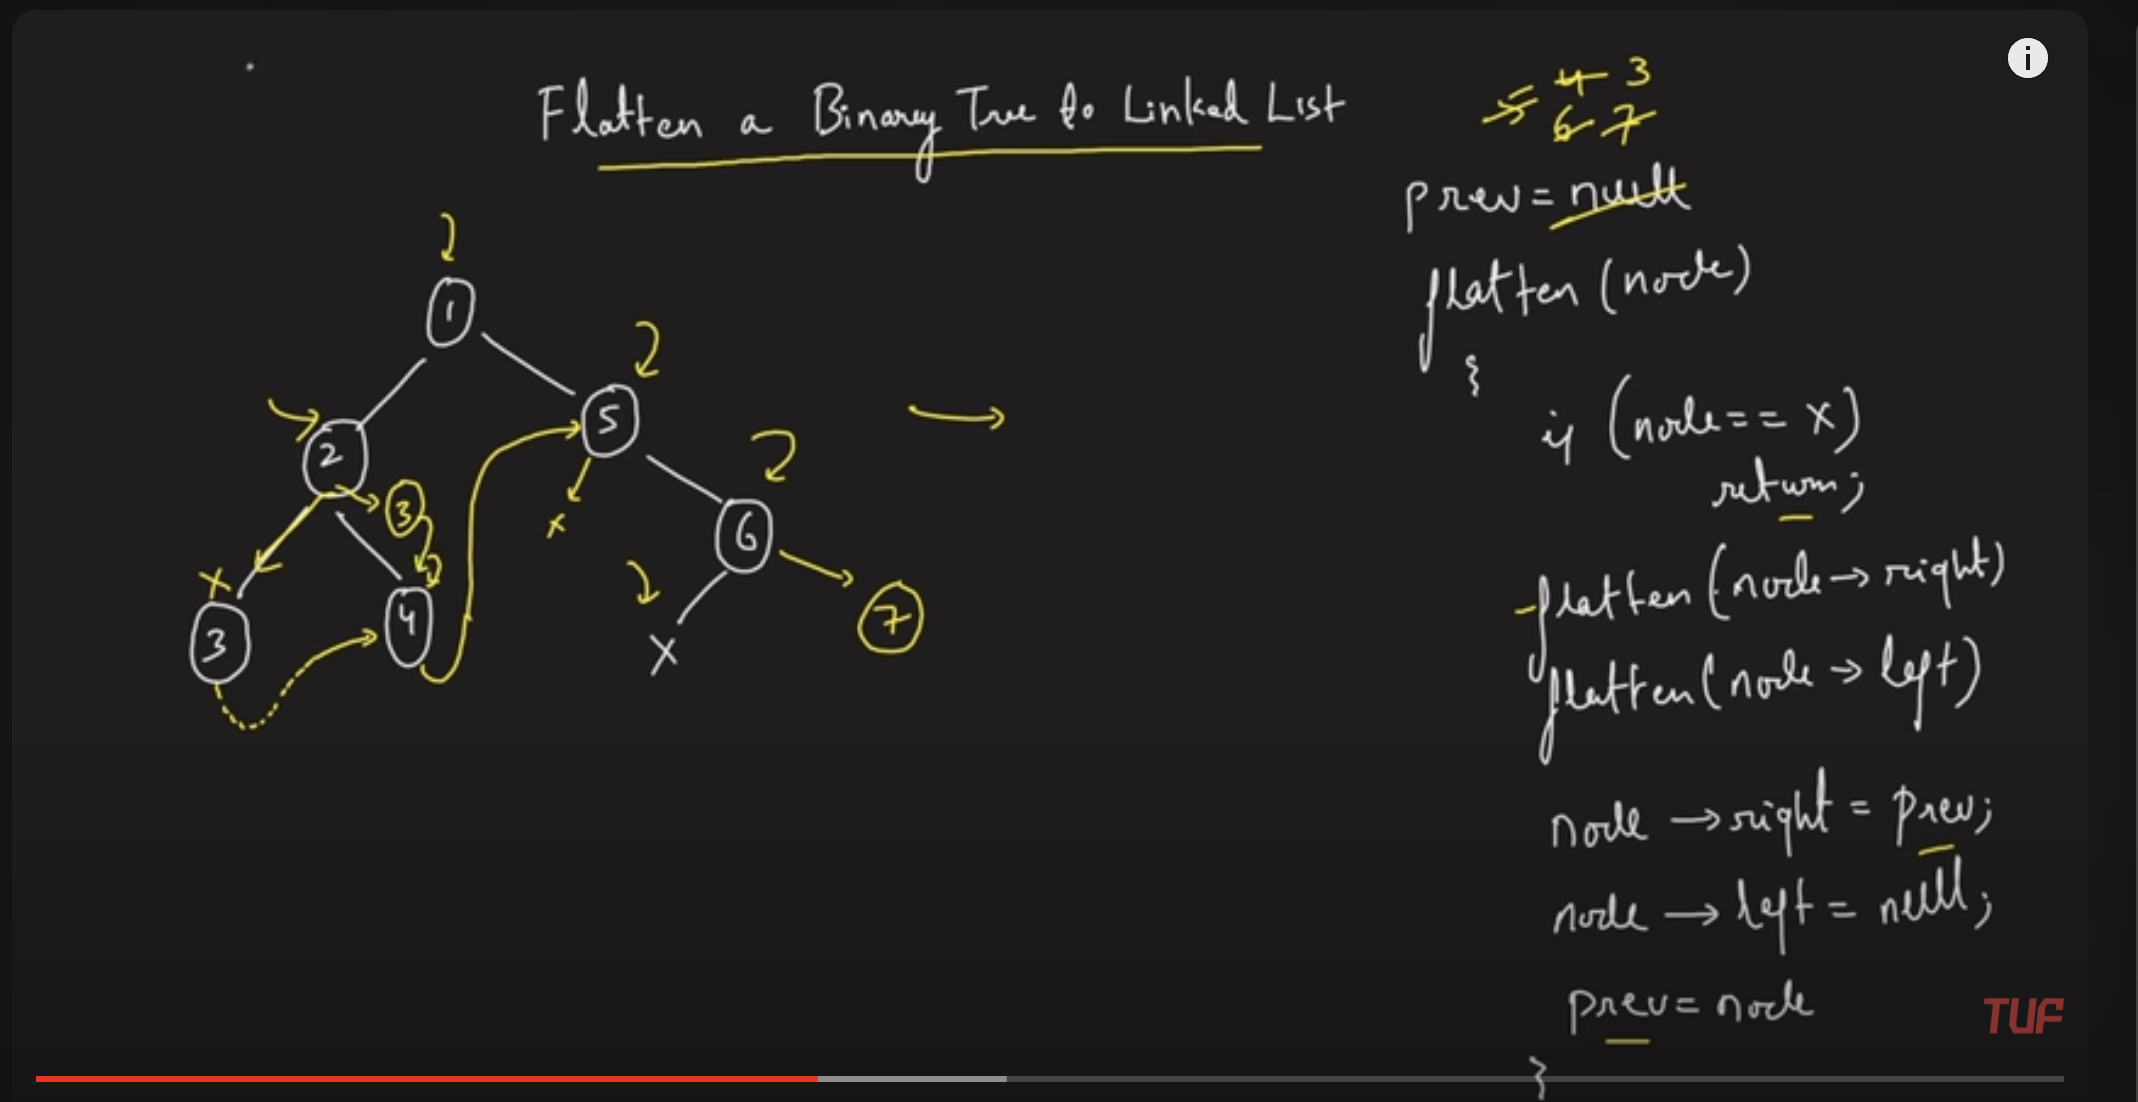 Flatten a Binary Tree to Linked List
5 4 3
6 7
prev = null
flatten (node)
{
if (node == x)
return;
flatten (node → right)
flatten (node → left)
node → right = prev;
node → left = null;
prev = node
}
1
2
5
3
x
x
6
3
4
7
x
TUF
i